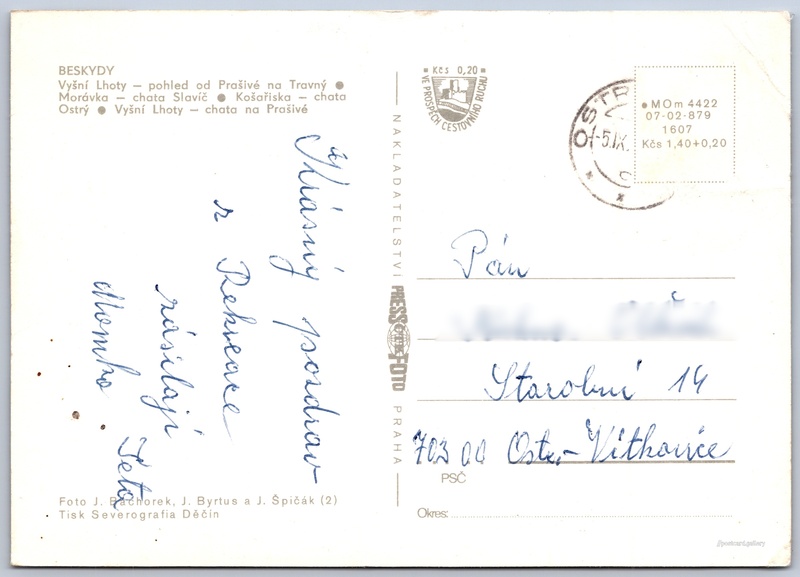 BESKYDY
Vyšní Lhoty — pohled od Prašivé na Travný ●
Morávka — chata Slavíč ● Košařiska — chata
Ostrý ● Vyšní Lhoty — chata na Prašivé
Krásný pozdrav
z Rekreace
zasílají
Mamka
Teta
Foto J. Bachorek, J. Byrtus a J. Špičák (2)
Tisk Severografia Děčín
NAKLADATELSTVÍ
PRESSFOTO
PRAHA
Kčs 0,20
VE PROSPĚCH CESTOVNÍHO RUCHU
OSTR
-5.IX.
MOm 4422
07-02-879
1607
Kčs 1,40+0,20
Pán
14
703 00 Ostr.-Vítkovice
PSČ
Okres: